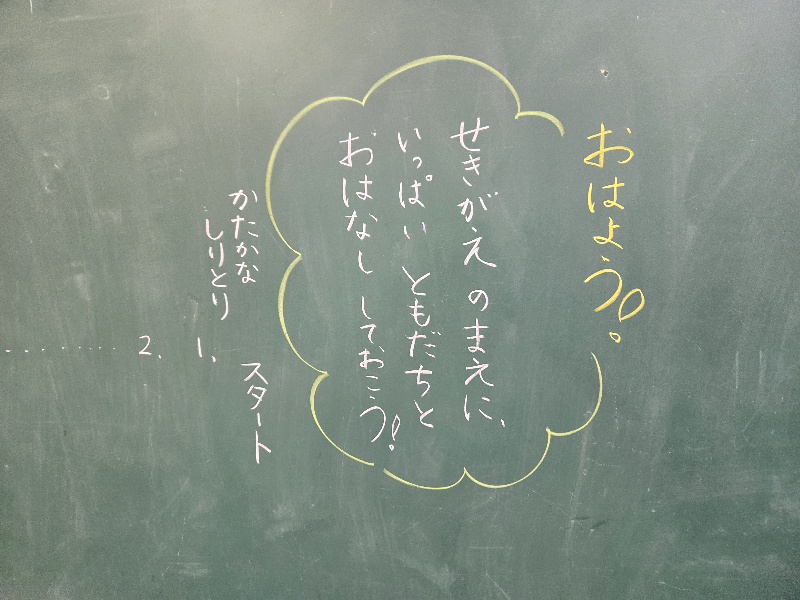 おはよう!
せきがえ のまえに、
いっぱい ともだちと
おはなし しておこう!
かたかな
しりとり
スタート
1.
2.